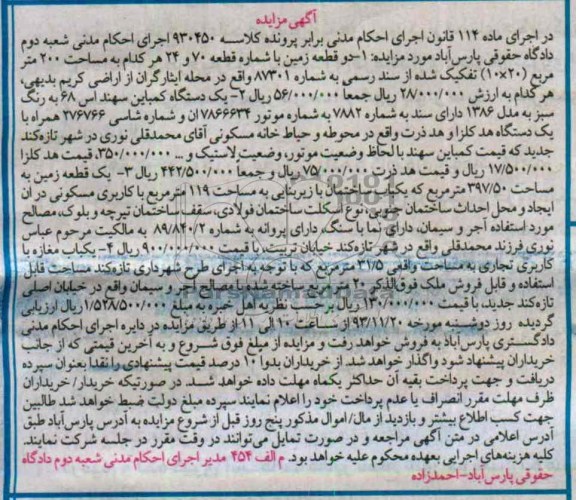 آگهی مزایده
در اجرای ماده ۱۱۴ قانون اجرای احکام مدنی برابر پرونده کلاسه ۹۳۰۴۵۰ اجرای احکام مدنی شعبه دوم
دادگاه حقوقی پارس‌آباد مورد مزایده: ۱-دو قطعه زمین با شماره قطعه ۷۰ و ۲۴ هر کدام به مساحت ۲۰۰ متر
مربع (۲۰×۱۰) تفکیک شده از سند رسمی به شماره ۸۷۳۰۱ واقع در محله ایثارگران از اراضی کریم بدیهی،
هر کدام به ارزش ۲۸/۰۰۰/۰۰۰ ریال جمعا ۵۶/۰۰۰/۰۰۰ ریال ۲- یک دستگاه کمباین سهند اس ۶۸ به رنگ
سبز به مدل ۱۳۸۶ دارای سند به شماره ۷۸۸۲ به شماره موتور ۷۸۶۶۶۳۴ و شماره شاسی ۲۷۶۷۶۶ همراه با
یک دستگاه هد کلزا و هد ذرت واقع در محوطه و حیاط خانه مسکونی آقای محمدقلی نوری در شهر تازه‌کند
جدید که قیمت کمباین سهند با لحاظ وضعیت موتور، وضعیت لاستیک و ... ۳۵۰/۰۰۰/۰۰۰، قیمت هد کلزا
۱۷/۵۰۰/۰۰۰ ریال و قیمت هد ذرت ۷۵/۰۰۰/۰۰۰ ریال و جمعا ۴۴۲/۵۰۰/۰۰۰ ریال ۳- یک قطعه زمین به
مساحت ۳۹۷/۵۰ مترمربع که یکباب ساختمان با زیربنایی به مساحت ۱۱۹ مترمربع با کاربری مسکونی در آن
ایجاد و محل احداث ساختمان جنوبی، نوع اسکلت ساختمان فولادی، سقف ساختمان تیرچه و بلوک، مصالح
مورد استفاده آجر و سیمان، دارای نما با سنگ، دارای پروانه به شماره ۸۹/۸۴۰/۲ به مالکیت مرحوم عباس
نوری فرزند محمدقلی واقع در شهر تازه‌کند خیابان تربیت، با قیمت ۹۰۰/۰۰۰/۰۰۰ ریال ۴- یکباب مغازه با
کاربری تجاری به مساحت واقعی ۳۱/۵ مترمربع که با توجه به اجرای طرح شهرداری تازه‌کند مساحت قابل
استفاده و قابل فروش ملک فوق‌الذکر ۲۰ مترمربع ساخته شده با مصالح آجر و سیمان واقع در خیابان اصلی
تازه‌کند جدید، با قیمت ۱۳۰/۰۰۰/۰۰۰ ریال بر حسب نظریه اهل خبره به مبلغ ۱/۵۲۸/۵۰۰/۰۰۰ ریال ارزیابی
گردیده روز دوشنبه مورخه ۹۳/۱۱/۲۰ از ساعت ۱۰ الی ۱۱ از طریق مزایده در دایره اجرای احکام مدنی
دادگستری پارس‌آباد به فروش خواهد رفت و مزایده از مبلغ فوق شروع و به آخرین قیمتی که از جانب
خریداران پیشنهاد شود واگذار خواهد شد. از خریداران بدوا ۱۰ درصد قیمت پیشنهادی را نقدا بعنوان سپرده
دریافت و جهت پرداخت بقیه آن حداکثر یکماه مهلت داده خواهد شد. در صورتیکه خریدار/ خریداران
ظرف مهلت مقرر انصراف یا عدم پرداخت خود را اعلام نمایند سپرده مبلغ دولت ضبط خواهد شد طالبین
جهت کسب اطلاع بیشتر و بازدید از مال/اموال مذکور پنج روز قبل از شروع مزایده به آدرس پارس‌آباد طبق
آدرس اعلامی در متن آگهی مراجعه و در صورت تمایل می‌توانند در وقت مقرر در جلسه شرکت نمایند.
کلیه هزینه‌های اجرایی بعهده محکوم علیه خواهد بود. م الف ۴۵۴ مدیر اجرای احکام مدنی شعبه دوم دادگاه
حقوقی پارس‌آباد-احمدزاده